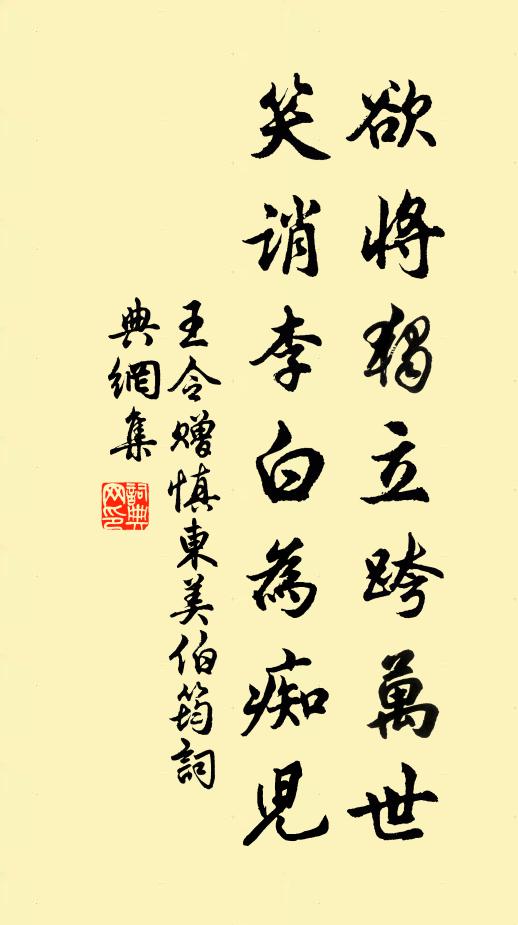 欲將獨立跨萬世
笑誚李白為痴兒
王令贈慎東美伯筠詞
典網集
詞典
网印